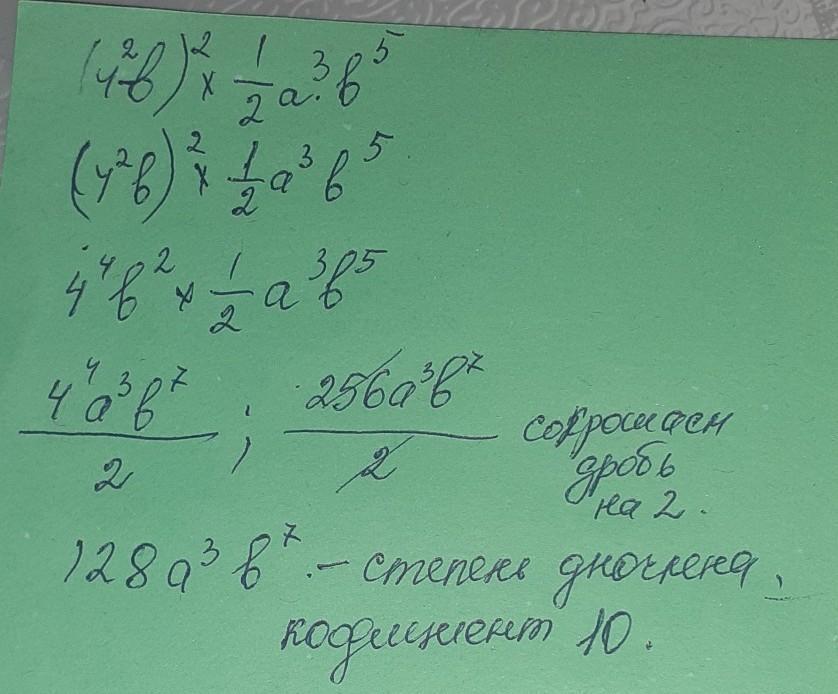 (4²b)² × 1/2 a³·b⁵
(4²b)² × 1/2 a³b⁵
4⁴b² × 1/2 a³b⁵
4⁴a³b⁷/2 ; 256a³b⁷/2 сокрошаем
дробь
на 2.
128a³b⁷ – степень дночлена,
кодициент 10.